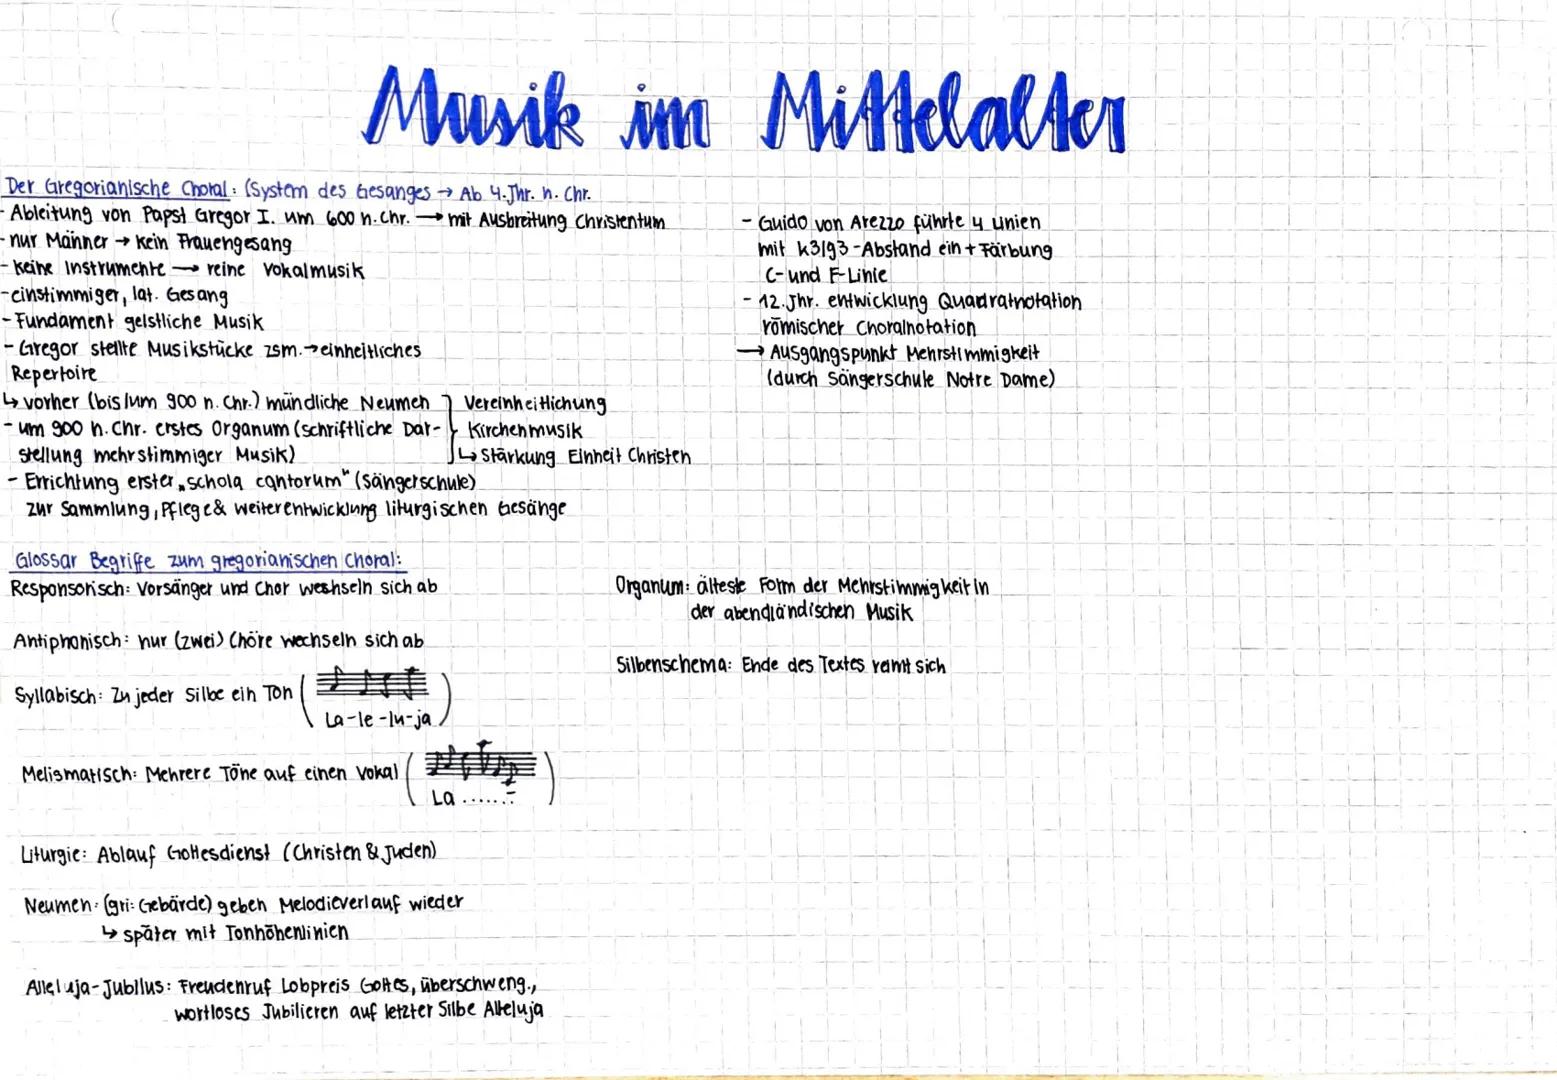 Musik im Mittelalter
Der Gregorianische Choral: (System des Gesanges → Ab 4. Jhr. n. Chr.
- Ableitung von Papst Gregor I. um 600 n. Chr. → mit Ausbreitung Christentum
- nur Männer → kein Frauengesang
- keine Instrumente → reine Vokalmusik
- einstimmiger, lat. Gesang
- Fundament geistliche Musik
- Gregor stellte Musikstücke zsm. → einheitliches
Repertoire
↳ vorher (bis/um 900 n. Chr.) mündliche Neumen } Vereinheitlichung
- um 900 n. Chr. erstes Organum (schriftliche Dar- } Kirchenmusik
stellung mehrstimmiger Musik) } ↳ Stärkung Einheit Christen
- Errichtung erster „schola cantorum" (Sängerschule)
zur Sammlung, Pflege & weiterentwicklung liturgischen Gesänge
- Guido von Arezzo führte 4 Linien
mit k3/g3-Abstand ein + Färbung
C- und F-Linie
- 12. Jhr. entwicklung Quadratnotation
römischer Choralnotation
→ Ausgangspunkt Mehrstimmigkeit
(durch Sängerschule Notre Dame)
Glossar Begriffe zum gregorianischen Choral:
Responsorisch: Vorsänger und Chor weshseln sich ab
Antiphonisch: nur (zwei) Chöre wechseln sich ab
Syllabisch: Zu jeder Silbe ein Ton
(La-le-lu-ja)
Melismatisch: Mehrere Töne auf einen Vokal
(La ......)
Liturgie: Ablauf Gottesdienst (Christen & Juden)
Neumen: (gri: Gebärde) geben Melodieverlauf wieder
↳ später mit Tonhöhenlinien
Alleluja-Jubilus: Freudenruf Lobpreis Gottes, überschweng.,
wortloses Jubilieren auf letzter Silbe Alleluja
Organum: älteste Form der Mehrstimmigkeit in
der abendländischen Musik
Silbenschema: Ende des Textes reimt sich